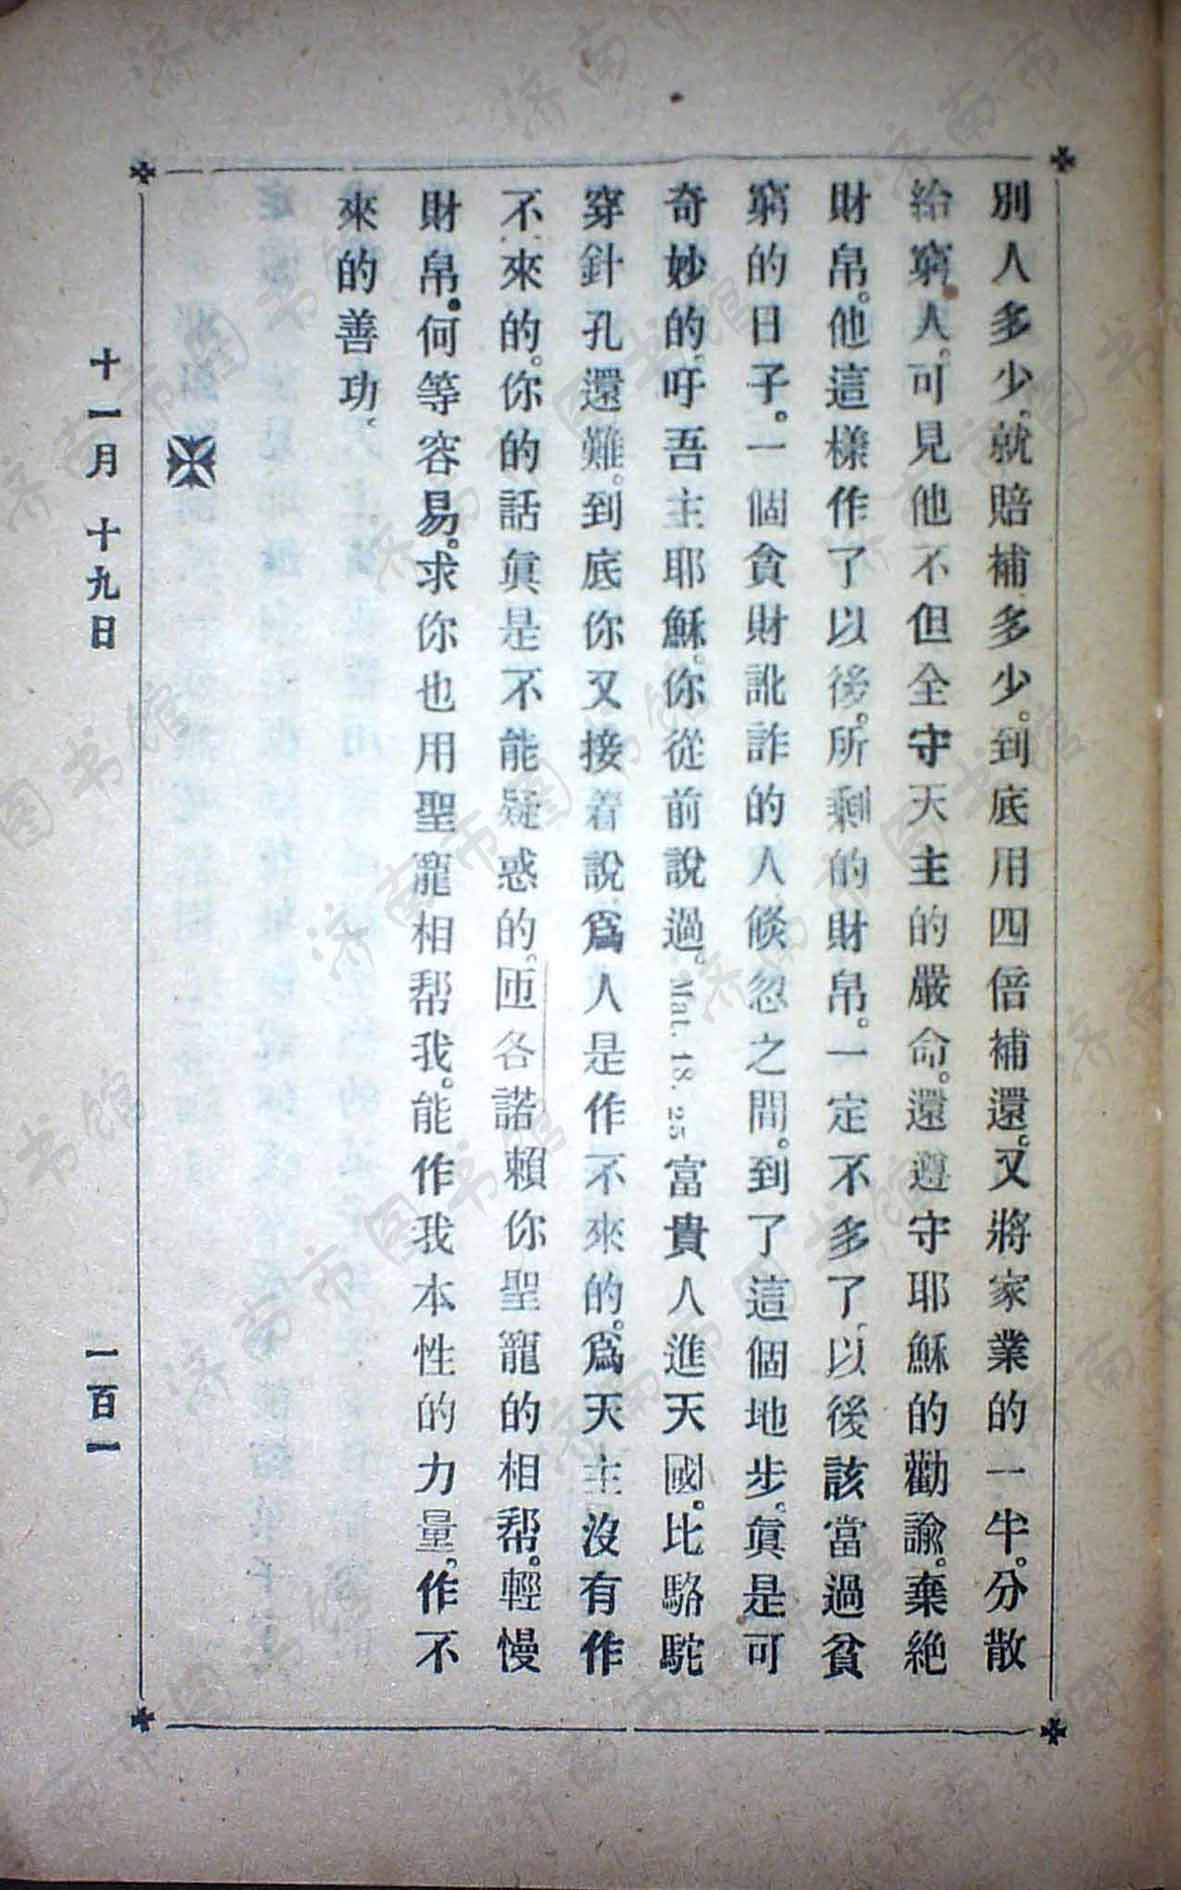 別人多少、就賠補多少。到底用四倍補還。又將家業的一半。分散
給窮人。可見他不但全守天主的嚴命。還遵守耶穌的勸諭。棄絶
財帛。他這樣作了以後。所剩的財帛。一定不多了、以後該當過貧
窮的日子。一個貪財訛詐的人倐忽之間。到了這個地步。眞是可
奇妙的。吁吾主耶穌。你從前說過。Mat. 18. 25 富貴人進天國。比駱駝
穿針孔還難。到底你又接着說、爲人是作不來的。爲天主沒有作
不來的。你的話眞是不能疑惑的。匝各諾賴你聖寵的相帮。輕慢
財帛。何等容易。求你也用聖寵相帮我。能作我本性的力量。作不
來的善功、
十一月 十九日
一百一